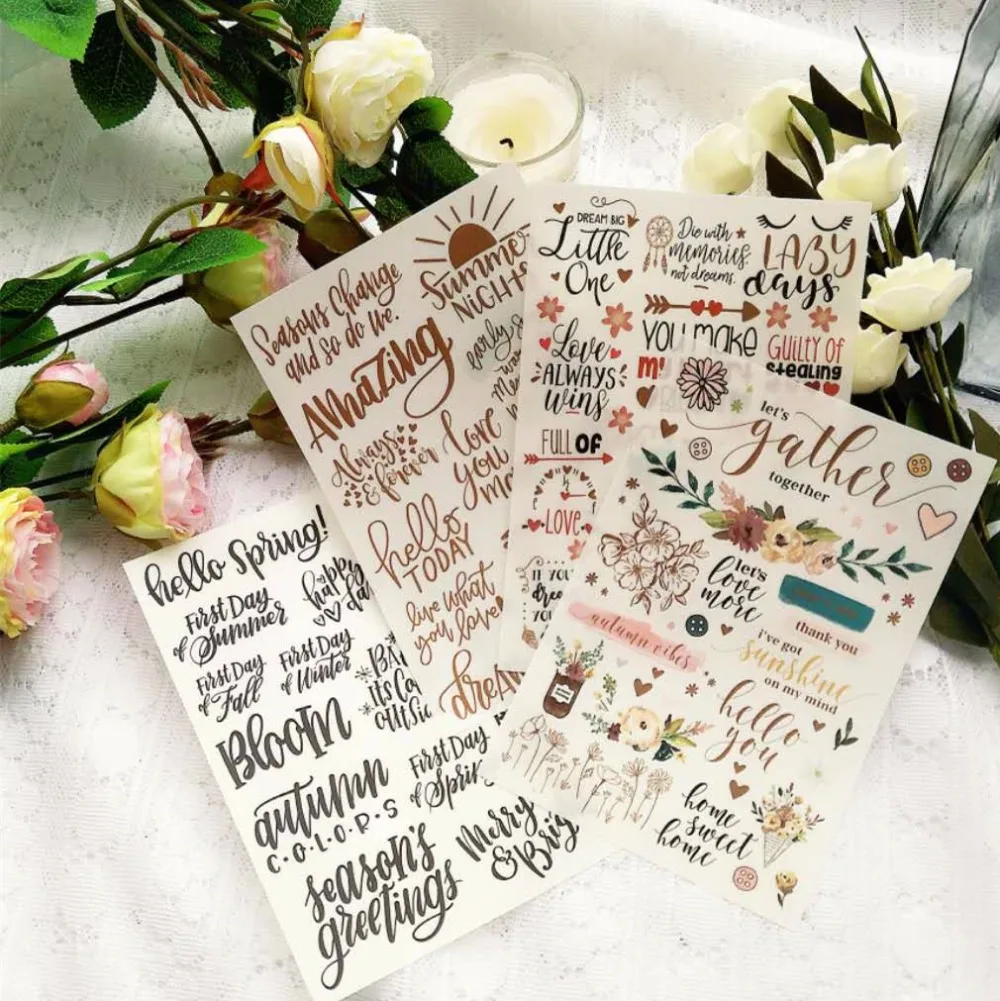 Seasons Change
and so do we.
Summer
NIGHTS
Amazing
early
Always
& forever
love
you
hello
TODAY
live what
you love
DREAM BIG
Little
One
Die with
memories
not dreams.
LAZY
days
Love
ALWAYS
wins
YOU MAKE
GUILTY OF
stealing
FULL OF
LOVE
hello Spring!
First Day
of Summer
happy
First Day
of Fall
First Day
of Winter
Bloom
autumn
C·O·L·O·R·S
First Day
season's
greetings
Merry
&
let's
gather
together
let's
love
more
thank you
autumn vibes
i've got
sunshine
on my mind
hello
you
home
sweet
home